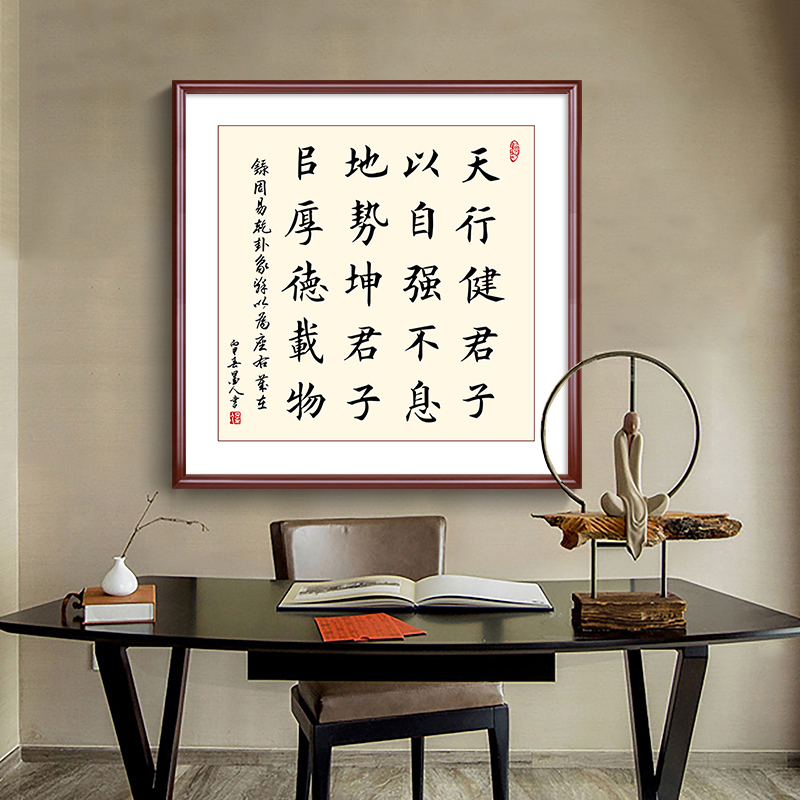 天行健君子
以自强不息
地势坤君子
㠯厚德載物
錄周易乾卦象辭以為座右
丙申
人書